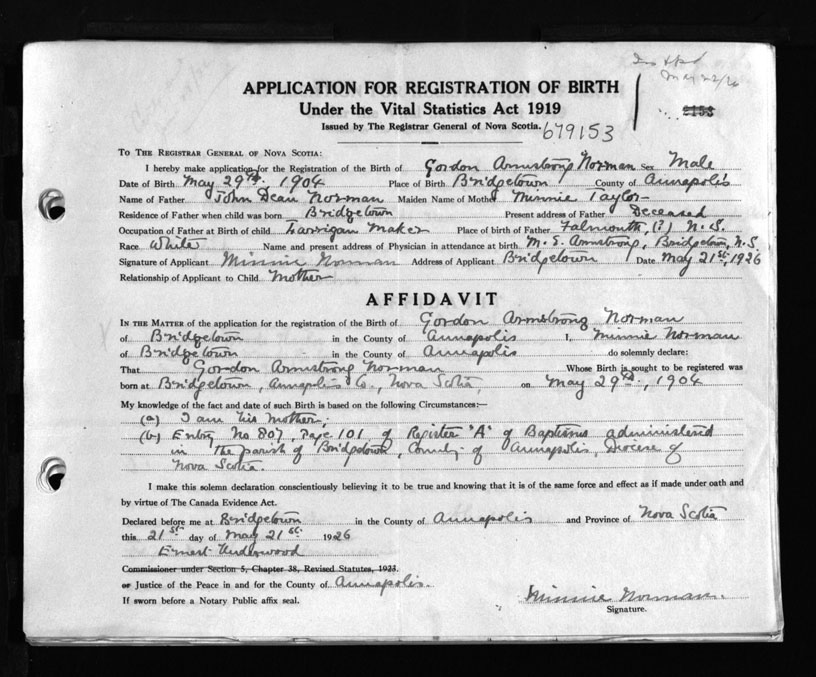 May 22/26
APPLICATION FOR REGISTRATION OF BIRTH
Under the Vital Statistics Act 1919
2153
Issued by The Registrar General of Nova Scotia. 679153
TO THE REGISTRAR GENERAL OF NOVA SCOTIA:
I hereby make application for the Registration of the Birth of Gordon Armstrong Norman Sex Male
Date of Birth May 29th 1904 Place of Birth Bridgetown County of Annapolis
Name of Father John Dean Norman Maiden Name of Mother Minnie Taylor
Residence of Father when child was born Bridgetown Present address of Father Deceased
Occupation of Father at Birth of child Larrigan Maker Place of birth of Father Falmouth, (?) N.S.
Race White Name and present address of Physician in attendance at birth M. E. Armstrong, Bridgetown, N.S.
Signature of Applicant Minnie Norman Address of Applicant Bridgetown Date May 21st, 1926
Relationship of Applicant to Child Mother
AFFIDAVIT
IN THE MATTER of the application for the registration of the Birth of Gordon Armstrong Norman
of Bridgetown in the County of Annapolis I, Minnie Norman
of Bridgetown in the County of Annapolis do solemnly declare:
That Gordon Armstrong Norman Whose Birth is sought to be registered was
born at Bridgetown, Annapolis Co., Nova Scotia on May 29th, 1904
My knowledge of the fact and date of such Birth is based on the following Circumstances:—
(a) I am his mother;
(b) Entry No. 807, Page 101 of Register "A" of Baptisms administered
in the parish of Bridgetown, County of Annapolis, Diocese of
Nova Scotia.
I make this solemn declaration conscientiously believing it to be true and knowing that it is of the same force and effect as if made under oath and
by virtue of The Canada Evidence Act.
Declared before me at Bridgetown in the County of Annapolis and Province of Nova Scotia
this 21st day of May 21st 1926
Ernest Underwood
Commissioner under Section 5, Chapter 38, Revised Statutes, 1923.
or Justice of the Peace in and for the County of Annapolis.
If sworn before a Notary Public affix seal.
Minnie Norman.
Signature.